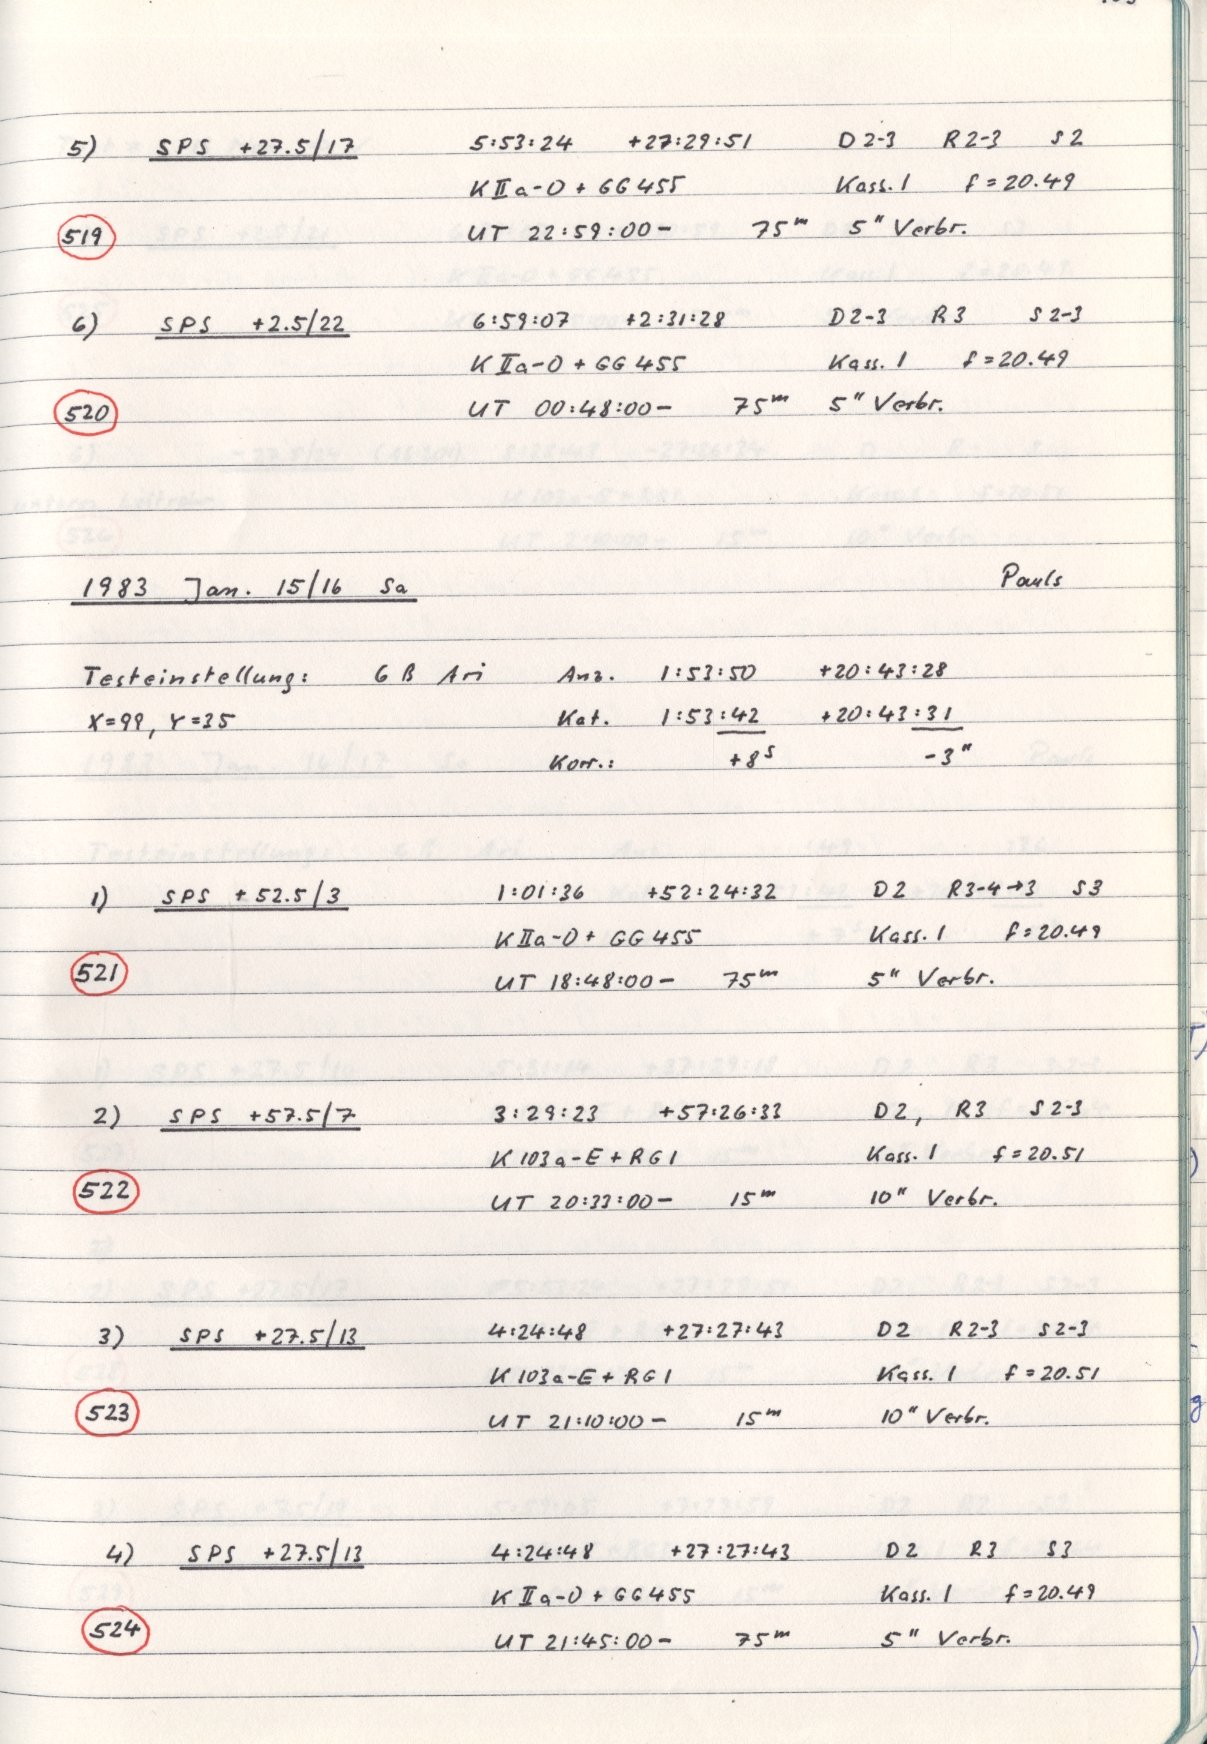 5) SPS +27.5/17 5:53:24 +27:29:51 D2-3 R2-3 S2
K IIa-O + GG455 Kass. 1 f=20.49
519 UT 22:59:00- 75m 5" Verbr.
6) SPS +2.5/22 6:59:07 +2:31:28 D2-3 R3 S2-3
K IIa-O + GG455 Kass. 1 f=20.49
520 UT 00:48:00- 75m 5" Verbr.
1983 Jan. 15/16 Sa Pauls
Testeinstellung: 6 β Ari Anz. 1:53:50 +20:43:28
X=99, Y=35 Kat. 1:53:42 +20:43:31
Korr.: +8s -3"
1) SPS +52.5/3 1:01:36 +52:24:32 D2 R3-4→3 S3
K IIa-O + GG455 Kass. 1 f=20.49
521 UT 18:48:00- 75m 5" Verbr.
2) SPS +57.5/7 3:29:23 +57:26:33 D2, R3 S2-3
K 103a-E + RG1 Kass. 1 f=20.51
522 UT 20:33:00- 15m 10" Verbr.
3) SPS +27.5/13 4:24:48 +27:27:43 D2 R2-3 S2-3
K 103a-E + RG1 Kass. 1 f=20.51
523 UT 21:10:00- 15m 10" Verbr.
4) SPS +27.5/13 4:24:48 +27:27:43 D2 R3 S3
K IIa-O + GG455 Kass. 1 f=20.49
524 UT 21:45:00- 75m 5" Verbr.